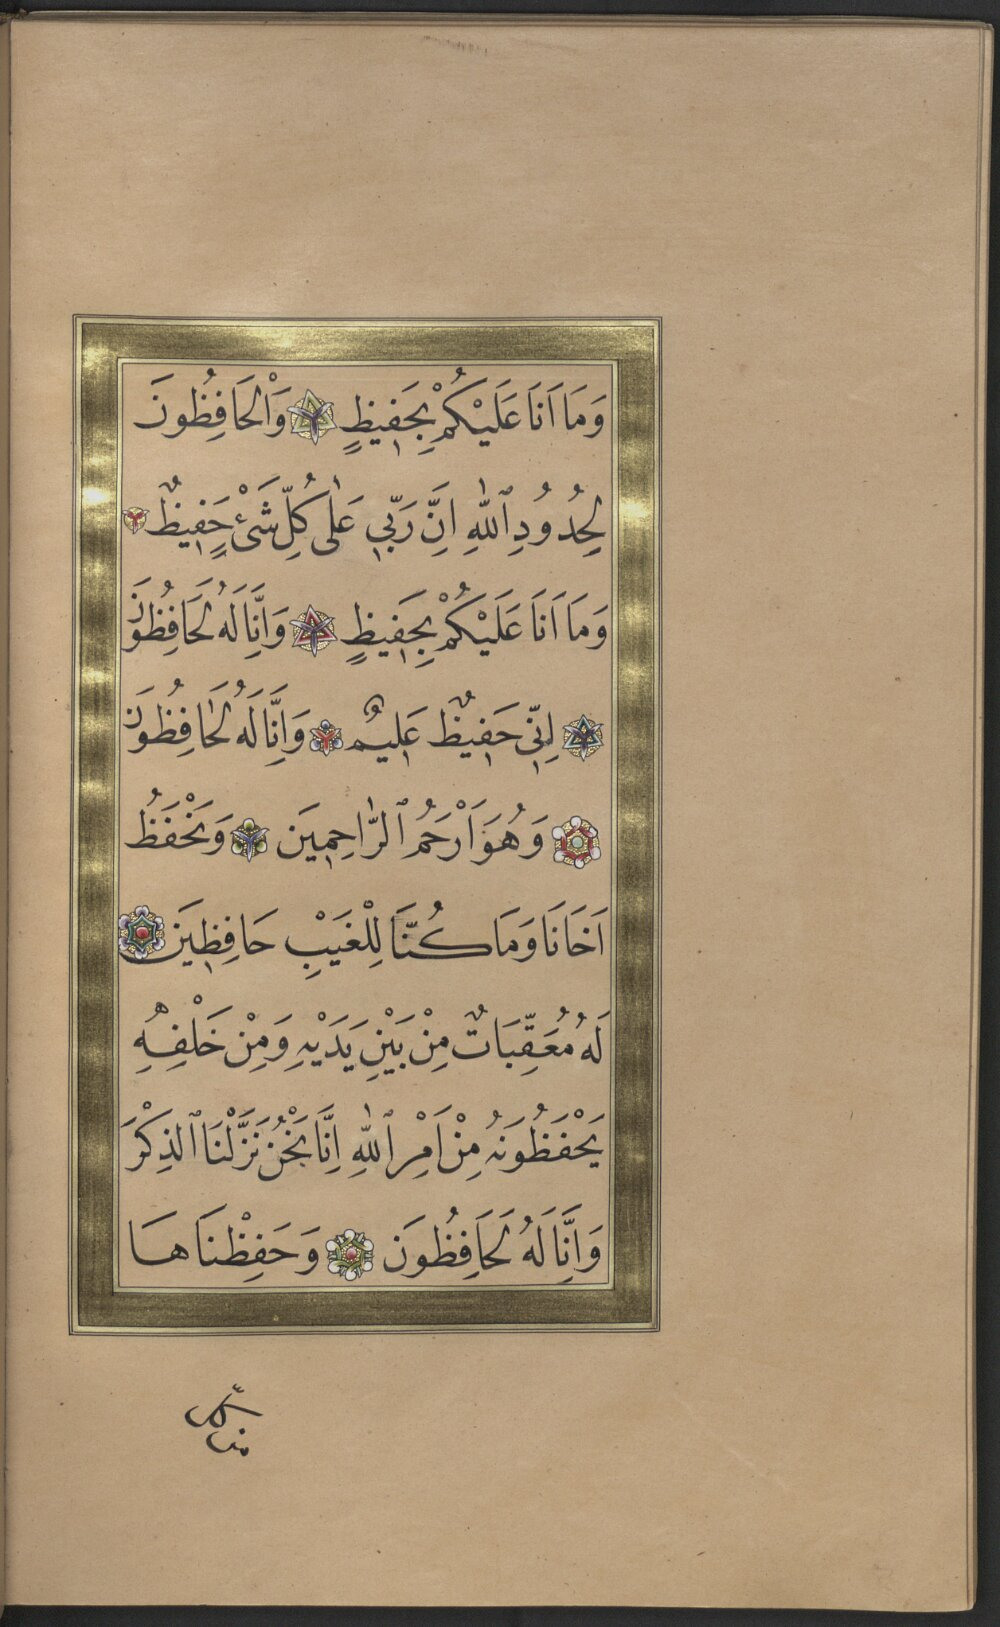 وَمَا اَنَا عَلَيْكُمْ بِحَفِيظٍ وَالْحَافِظُونَ
لِحُدُودِ ٱللّٰهِ اِنَّ رَبِّي عَلٰى كُلِّ شَيْءٍ حَفِيظٌ
وَمَا اَنَا عَلَيْكُمْ بِحَفِيظٍ وَاِنَّا لَهُ لَحَافِظُونَ
اِنِّي حَفِيظٌ عَلِيمٌ وَاِنَّا لَهُ لَحَافِظُونَ
وَهُوَ اَرْحَمُ ٱلرَّاحِمِينَ وَنَحْفَظُ
اَخَانَا وَمَا كُنَّا لِلْغَيْبِ حَافِظِينَ
لَهُ مُعَقِّبَاتٌ مِنْ بَيْنِ يَدَيْهِ وَمِنْ خَلْفِهِ
يَحْفَظُونَهُ مِنْ اَمْرِ ٱللّٰهِ اِنَّا نَحْنُ نَزَّلْنَا ٱلذِكْرَ
وَاِنَّا لَهُ لَحَافِظُونَ وَحَفِظْنَاهَا